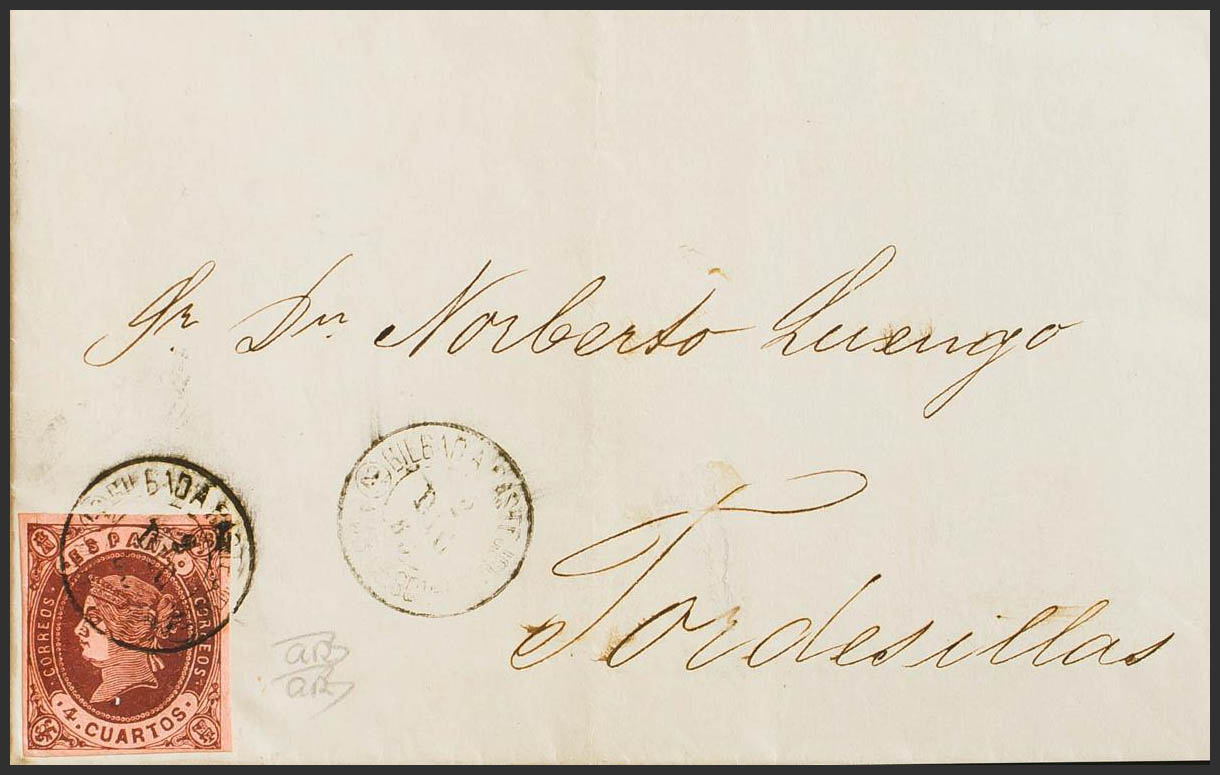 Sr Dn Norberto Luengo
Tordesillas
BILBAO
BILBAO
ESPAÑA
CORREOS
CORREOS
4. CUARTOS.